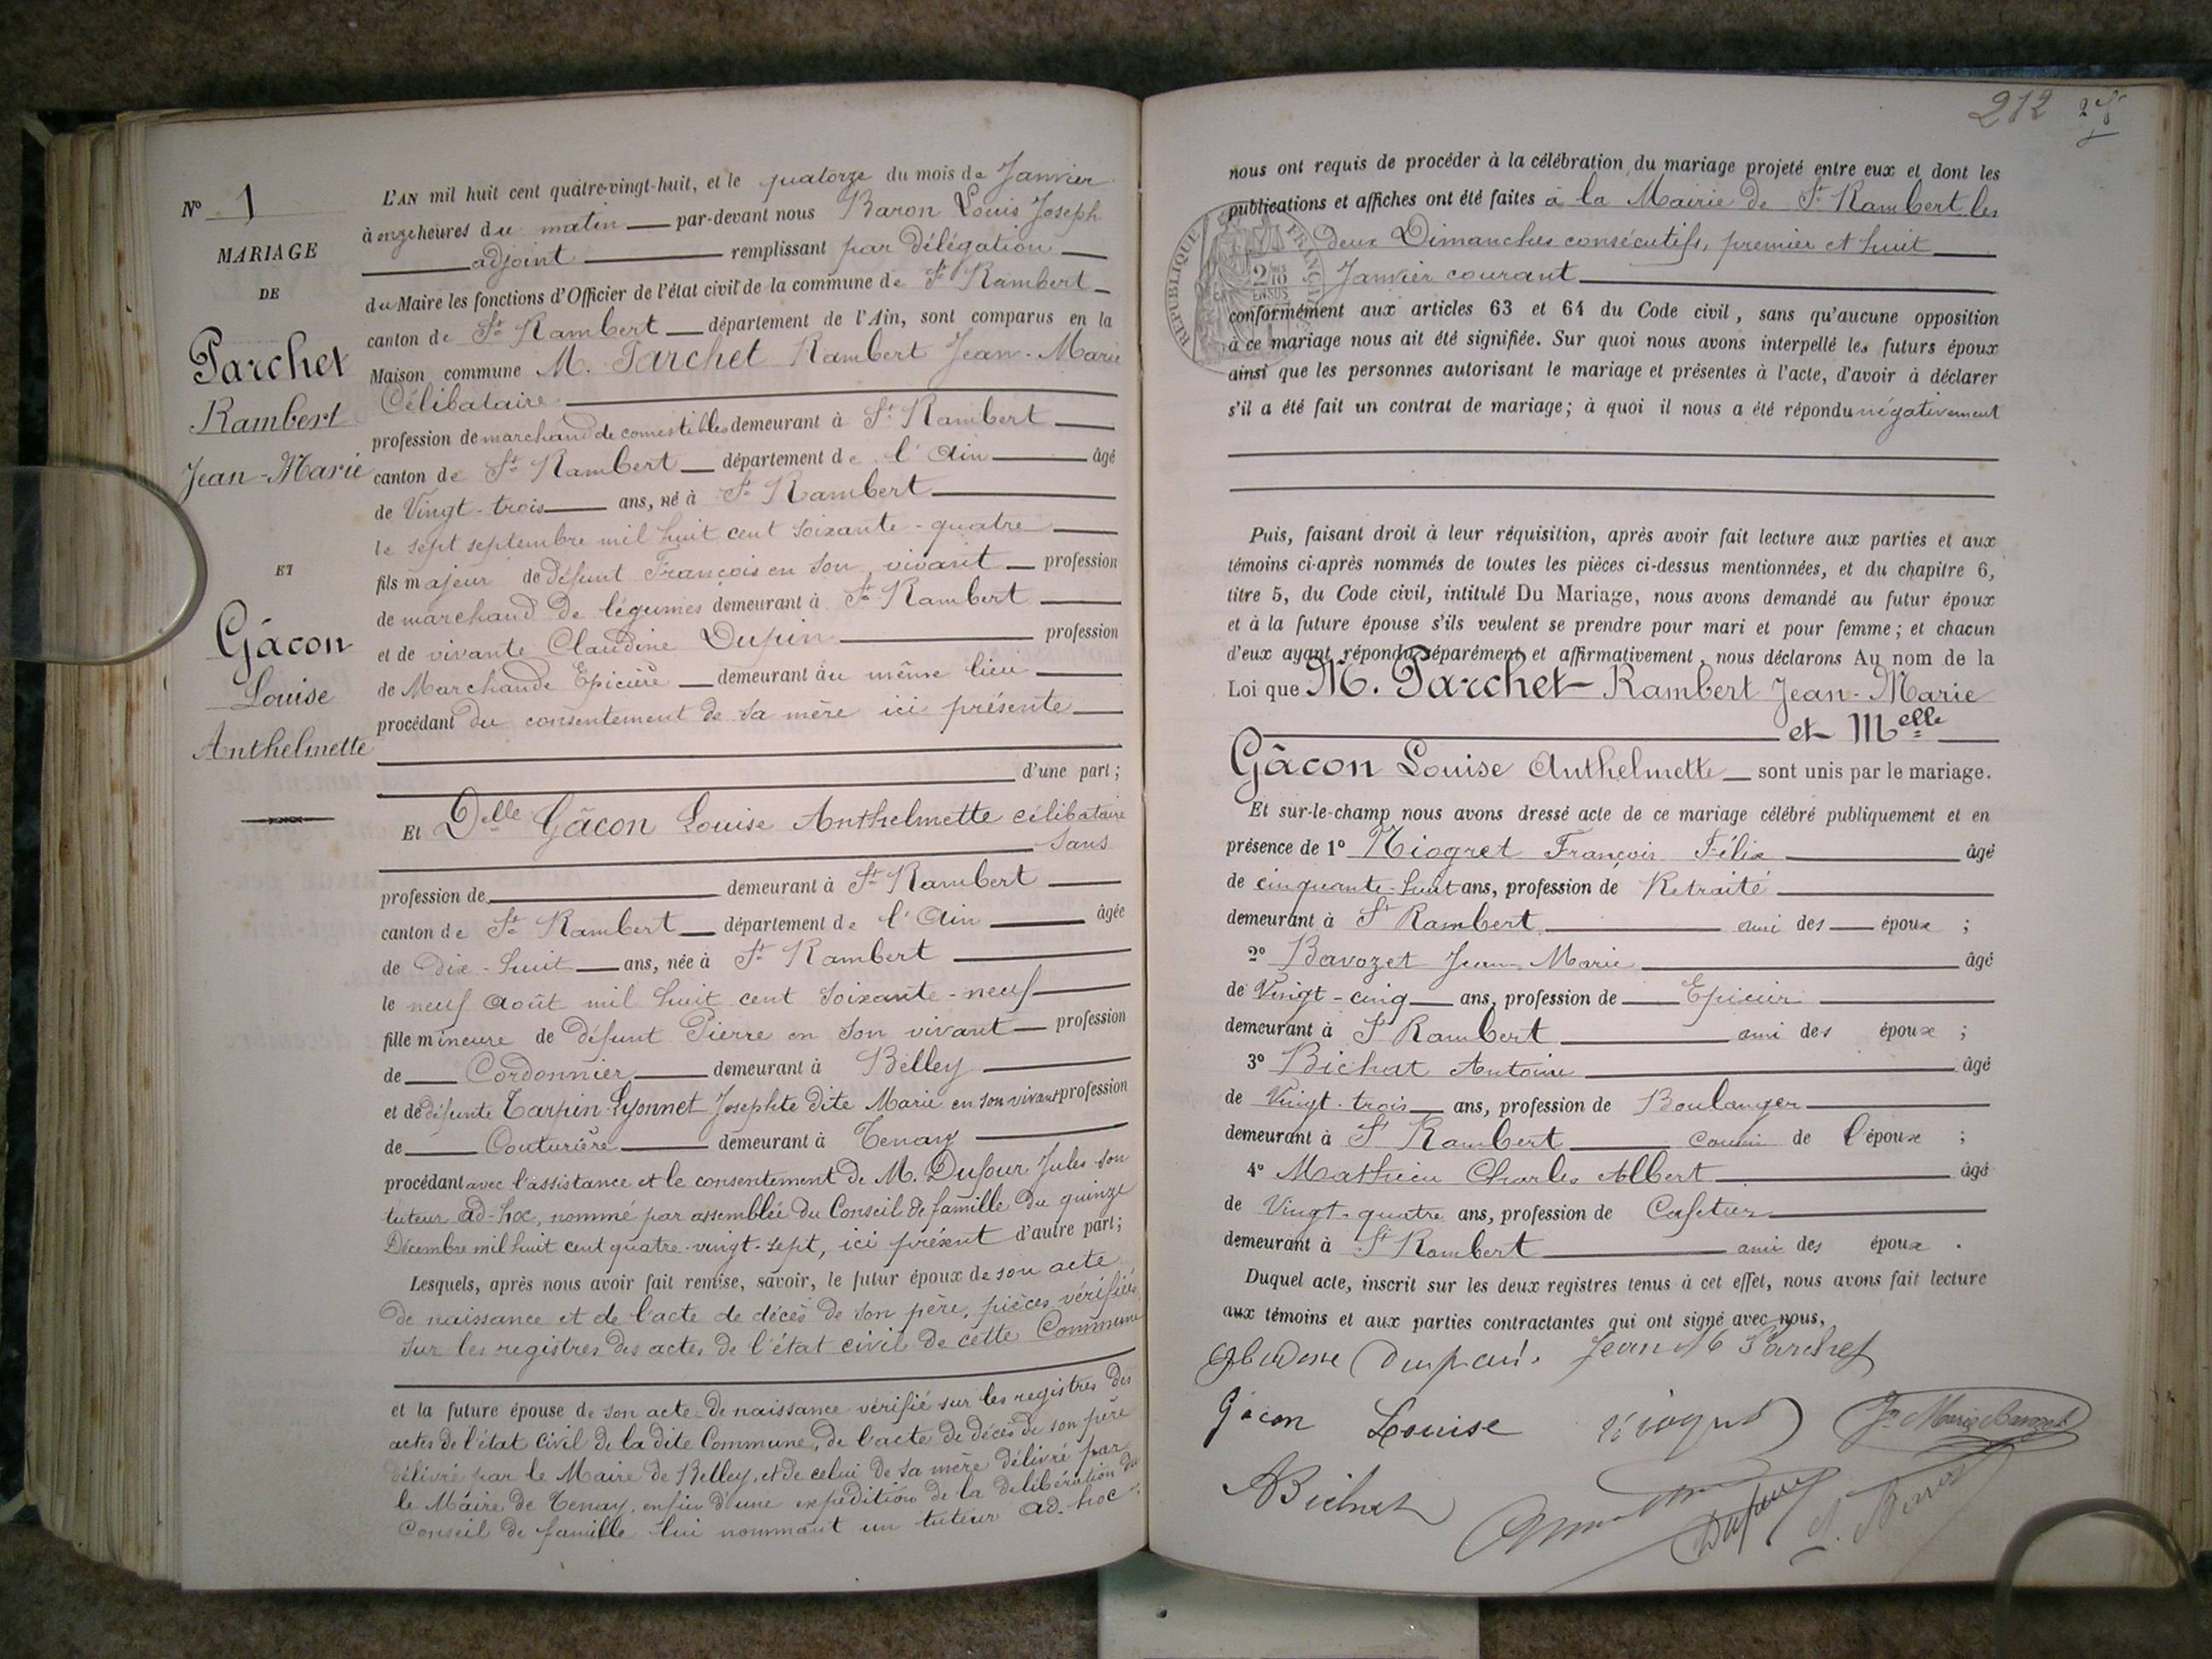 N° 1
MARIAGE
DE
Parchet
Rambert
Jean-Marie
ET
Gâcon
Louise
Anthelmette
L'AN mil huit cent quatre-vingt-huit, et le quatorze du mois de Janvier
à onze heures du matin par-devant nous Baron Louis Joseph
adjoint remplissant par délégation
du Maire les fonctions d'Officier de l'état civil de la commune de St Rambert
canton de St Rambert département de l'Ain, sont comparus en la
Maison commune M. Parchet Rambert Jean-Marie
Célibataire
profession de marchand de comestibles demeurant à St Rambert
canton de St Rambert département de l'Ain âgé
de Vingt-trois ans, né à St Rambert
le sept septembre mil huit cent soixante-quatre
fils majeur de défunt François en son vivant profession
de marchand de légumes demeurant à St Rambert
et de vivante Claudine Dupin profession
de Marchande Epicière demeurant au même lieu
procédant du consentement de sa mère ici présente
d'une part;
Et Delle Gâcon Louise Anthelmette célibataire
Sans
profession de demeurant à St Rambert
canton de St Rambert département de l'Ain âgée
de Dix-huit ans, née à St Rambert
le neuf Août mil huit cent soixante-neuf
fille mineure de défunt Pierre en son vivant profession
de Cordonnier demeurant à Belley
et de défunte Tarpin-Lyonnet Josephte dite Marie en son vivant profession
de Couturière demeurant à Tenay
procédant avec l'assistance et le consentement de M. Dufour Jules son
tuteur ad-hoc, nommé par assemblée du Conseil de famille du quinze
Décembre mil huit cent quatre-vingt-sept, ici présent d'autre part;
Lesquels, après nous avoir fait remise, savoir, le futur époux de son acte
de naissance et de l'acte de décès de son père, pièces vérifiées
sur les registres des actes de l'état civil de cette Commune
et la future épouse de son acte de naissance vérifié sur les registres des
actes de l'état civil de la dite Commune, de l'acte de décès de son père
délivré par le Maire de Belley, et de celui de sa mère délivré par
le Maire de Tenay, enfin d'une expédition de la délibération du
Conseil de famille lui nommant un tuteur ad-hoc.
212
nous ont requis de procéder à la célébration du mariage projeté entre eux et dont les
publications et affiches ont été faites à la Mairie de St Rambert les
deux Dimanches consécutifs, premier et huit
Janvier courant
conformément aux articles 63 et 64 du Code civil, sans qu'aucune opposition
à ce mariage nous ait été signifiée. Sur quoi nous avons interpellé les futurs époux
ainsi que les personnes autorisant le mariage et présentes à l'acte, d'avoir à déclarer
s'il a été fait un contrat de mariage; à quoi il nous a été répondu négativement
Puis, faisant droit à leur réquisition, après avoir fait lecture aux parties et aux
témoins ci-après nommés de toutes les pièces ci-dessus mentionnées, et du chapitre 6,
titre 5, du Code civil, intitulé Du Mariage, nous avons demandé au futur époux
et à la future épouse s'ils veulent se prendre pour mari et pour femme; et chacun
d'eux ayant répondu séparément et affirmativement, nous déclarons Au nom de la
Loi que M. Parchet Rambert Jean-Marie
et Melle
Gâcon Louise Anthelmette sont unis par le mariage.
Et sur-le-champ nous avons dressé acte de ce mariage célébré publiquement et en
présence de 1° Niogret François Félix âgé
de cinquante-huit ans, profession de Retraité
demeurant à St Rambert ami des époux ;
2° Bavozet Jean-Marie âgé
de Vingt-cinq ans, profession de Epicier
demeurant à St Rambert ami des époux ;
3° Bichat Antoine âgé
de Vingt-trois ans, profession de Boulanger
demeurant à St Rambert cousin de l'époux ;
4° Mathieu Charles Albert âgé
de Vingt-quatre ans, profession de Cafetier
demeurant à St Rambert ami des époux .
Duquel acte, inscrit sur les deux registres tenus à cet effet, nous avons fait lecture
aux témoins et aux parties contractantes qui ont signé avec nous,
Jean M Parchet
Gâcon Louise
ABichat
Dufour